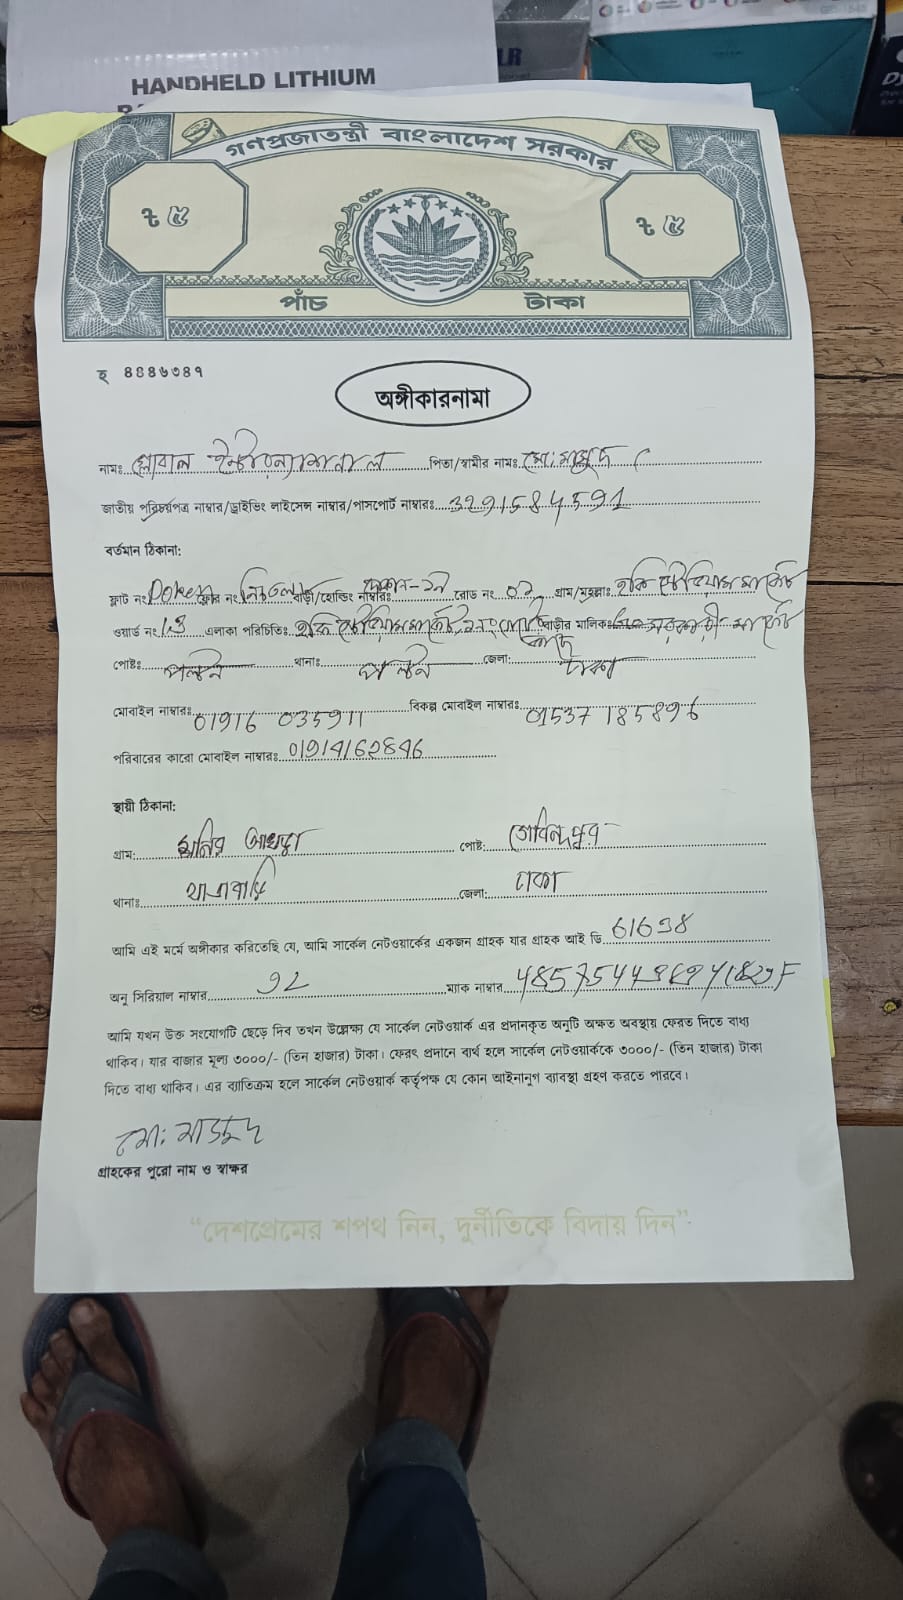 HANDHELD LITHIUM
LR
গণপ্রজাতন্ত্রী বাংলাদেশ সরকার
৳ ৫
৳ ৫
পাঁচ টাকা
হ ৪৪৪৬৩৪৭
অঙ্গীকারনামা
নামঃ গ্লোবাল ইন্টারন্যাশনাল পিতা/স্বামীর নামঃ মো: মাসুদ
জাতীয় পরিচয়পত্র নাম্বার/ড্রাইভিং লাইসেন্স নাম্বার/পাসপোর্ট নাম্বারঃ 3291584591
বর্তমান ঠিকানা:
ফ্লাট নং ফ্লোর নং নিচতলা বাড়ী/হোল্ডিং নাম্বারঃ দোকান-২নং রোড নং 02 গ্রাম/মহল্লাঃ হকি স্টেডিয়াম মার্কেট
ওয়ার্ড নং 13 এলাকা পরিচিতিঃ হকি স্টেডিয়াম মার্কেট, ২নং গেটের কাছে বাড়ীর মালিকঃ সরকারী মার্কেট
পোষ্টঃ পল্টন থানাঃ পল্টন জেলা: ঢাকা
মোবাইল নাম্বারঃ 01916 035911 বিকল্প মোবাইল নাম্বারঃ 01537 185896
পরিবারের কারো মোবাইল নাম্বারঃ 01914162846
স্থায়ী ঠিকানা:
গ্রাম: মনির পোষ্ট: গোবিন্দপুর
থানাঃ যাত্রাবাড়ি জেলা: ঢাকা
আমি এই মর্মে অঙ্গীকার করিতেছি যে, আমি সার্কেল নেটওয়ার্কের একজন গ্রাহক যার গ্রাহক আই ডি 61698
অনু সিরিয়াল নাম্বার 92 ম্যাক নাম্বার
আমি যখন উক্ত সংযোগটি ছেড়ে দিব তখন উল্লেক্ষ্য যে সার্কেল নেটওয়ার্ক এর প্রদানকৃত অনুটি অক্ষত অবস্থায় ফেরত দিতে বাধ্য
থাকিব। যার বাজার মূল্য ৩০০০/- (তিন হাজার) টাকা। ফেরৎ প্রদানে ব্যর্থ হলে সার্কেল নেটওয়ার্ককে ৩০০০/- (তিন হাজার) টাকা
দিতে বাধ্য থাকিব। এর ব্যাতিক্রম হলে সার্কেল নেটওয়ার্ক কর্তৃপক্ষ যে কোন আইনানুগ ব্যবস্থা গ্রহণ করতে পারবে।
মো: মাসুদ
গ্রাহকের পুরো নাম ও স্বাক্ষর
“দেশপ্রেমের শপথ নিন, দুর্নীতিকে বিদায় দিন”